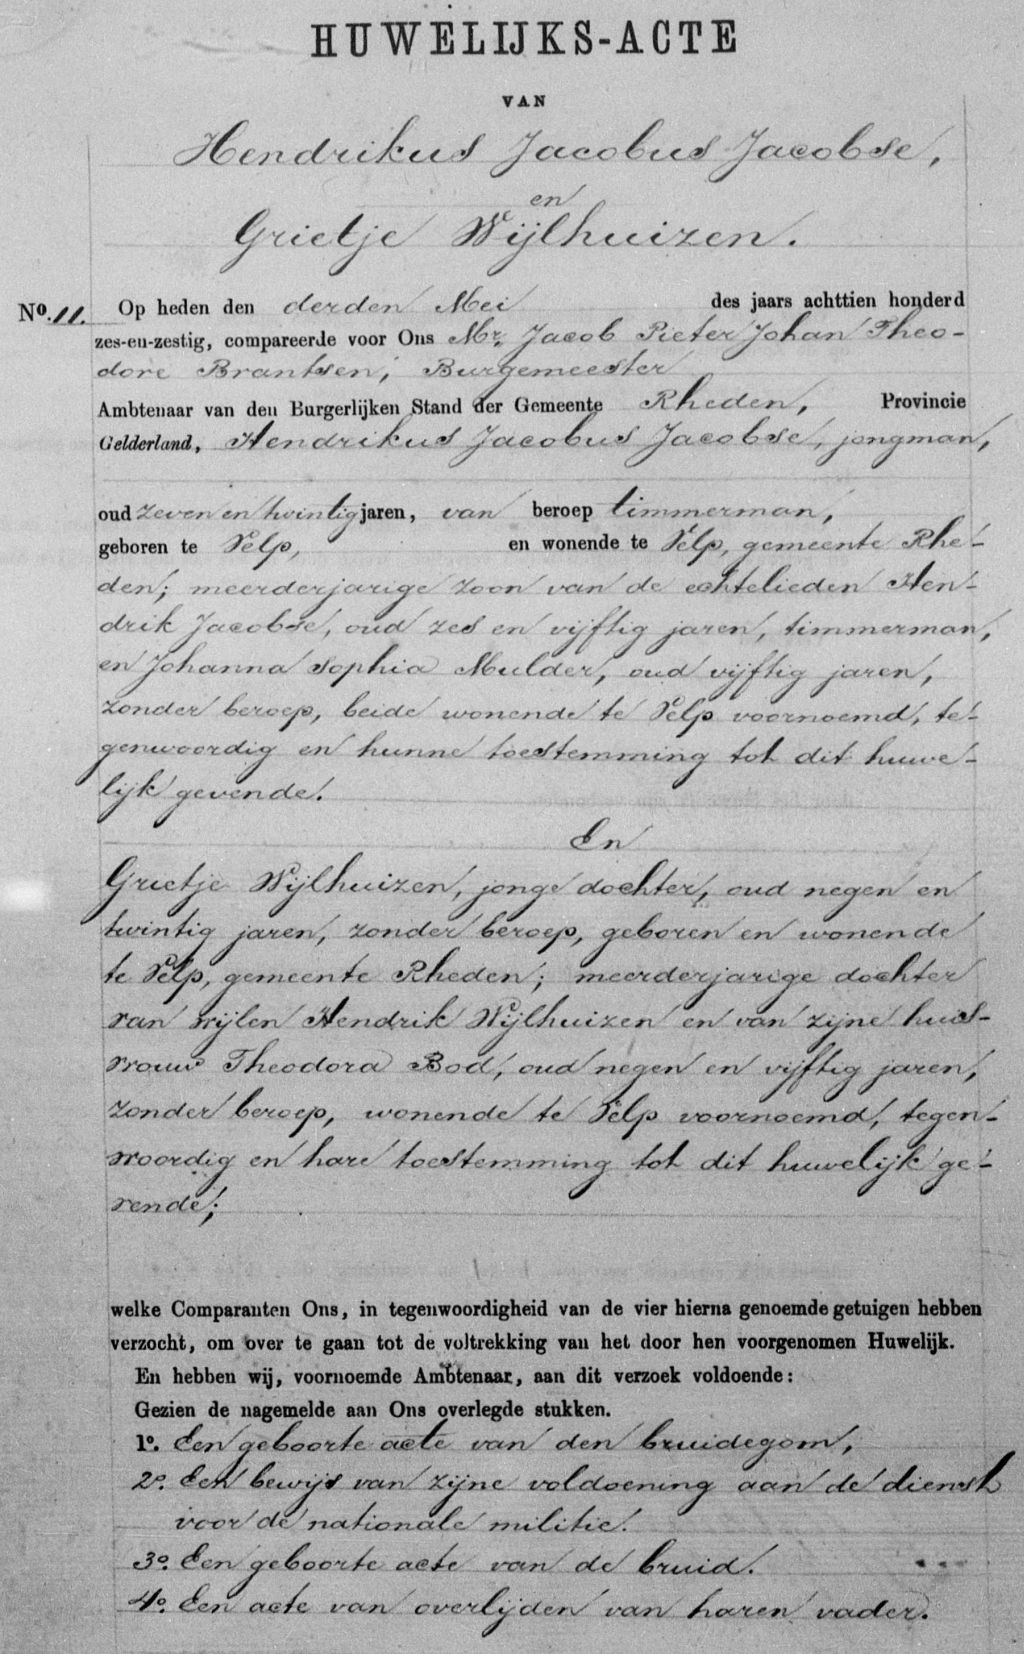 HUWELIJKS-ACTE
VAN
Hendrikus Jacobus Jacobse,
en
Grietje Wijlhuizen.
No. 11. Op heden den derden Mei des jaars achttien honderd
zes-en-zestig, compareerde voor Ons Mr. Jacob Pieter Johan Theo-
dore Brantsen, Burgemeester
Ambtenaar van den Burgerlijken Stand der Gemeente Rheden, Provincie
Gelderland, Hendrikus Jacobus Jacobse, jongman,
oud zeven en twintig jaren, van beroep timmerman,
geboren te Velp, en wonende te Velp, gemeente Rhe-
den; meerderjarige zoon van de echtelieden Hen-
drik Jacobse, oud zes en vijftig jaren, timmerman,
en Johanna Sophia Mulder, oud vijftig jaren,
zonder beroep, beide wonende te Velp voornoemd, te-
genwoordig en hunne toestemming tot dit huwe-
lijk gevende.
En
Grietje Wijlhuizen, jonge dochter, oud negen en
twintig jaren, zonder beroep, geboren en wonende
te Velp, gemeente Rheden; meerderjarige dochter
van wijlen Hendrik Wijlhuizen en van zijne huis-
vrouw Theodora Bod, oud negen en vijftig jaren,
zonder beroep, wonende te Velp voornoemd, tegen-
woordig en hare toestemming tot dit huwelijk ge-
vende;
welke Comparanten Ons, in tegenwoordigheid van de vier hierna genoemde getuigen hebben
verzocht, om over te gaan tot de voltrekking van het door hen voorgenomen Huwelijk.
En hebben wij, voornoemde Ambtenaar, aan dit verzoek voldoende:
Gezien de nagemelde aan Ons overlegde stukken.
1o. Een geboorte acte van den bruidegom,
2o. Een bewijs van zijne voldoening aan de dienst
voor de nationale militie.
3o. Een geboorte acte van de bruid.
4o. Een acte van overlijden van haren vader.